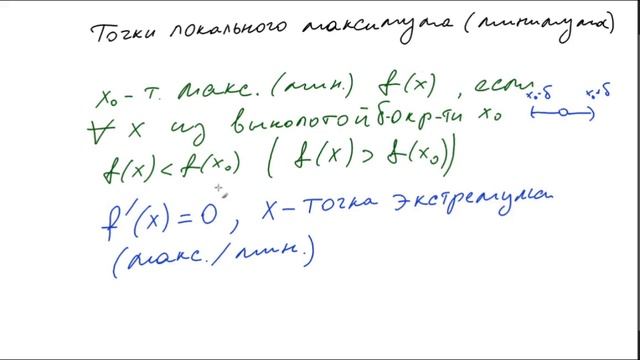 Точки локального максимума (минимума)
x₀ - т. макс. (мин.) f(x), если
x₀-δ x₀+δ
∀ x из выколотой δ-окр-ти x₀
f(x) < f(x₀) ( f(x) > f(x₀))
f'(x) = 0, x - точка экстремума
(макс./мин.)